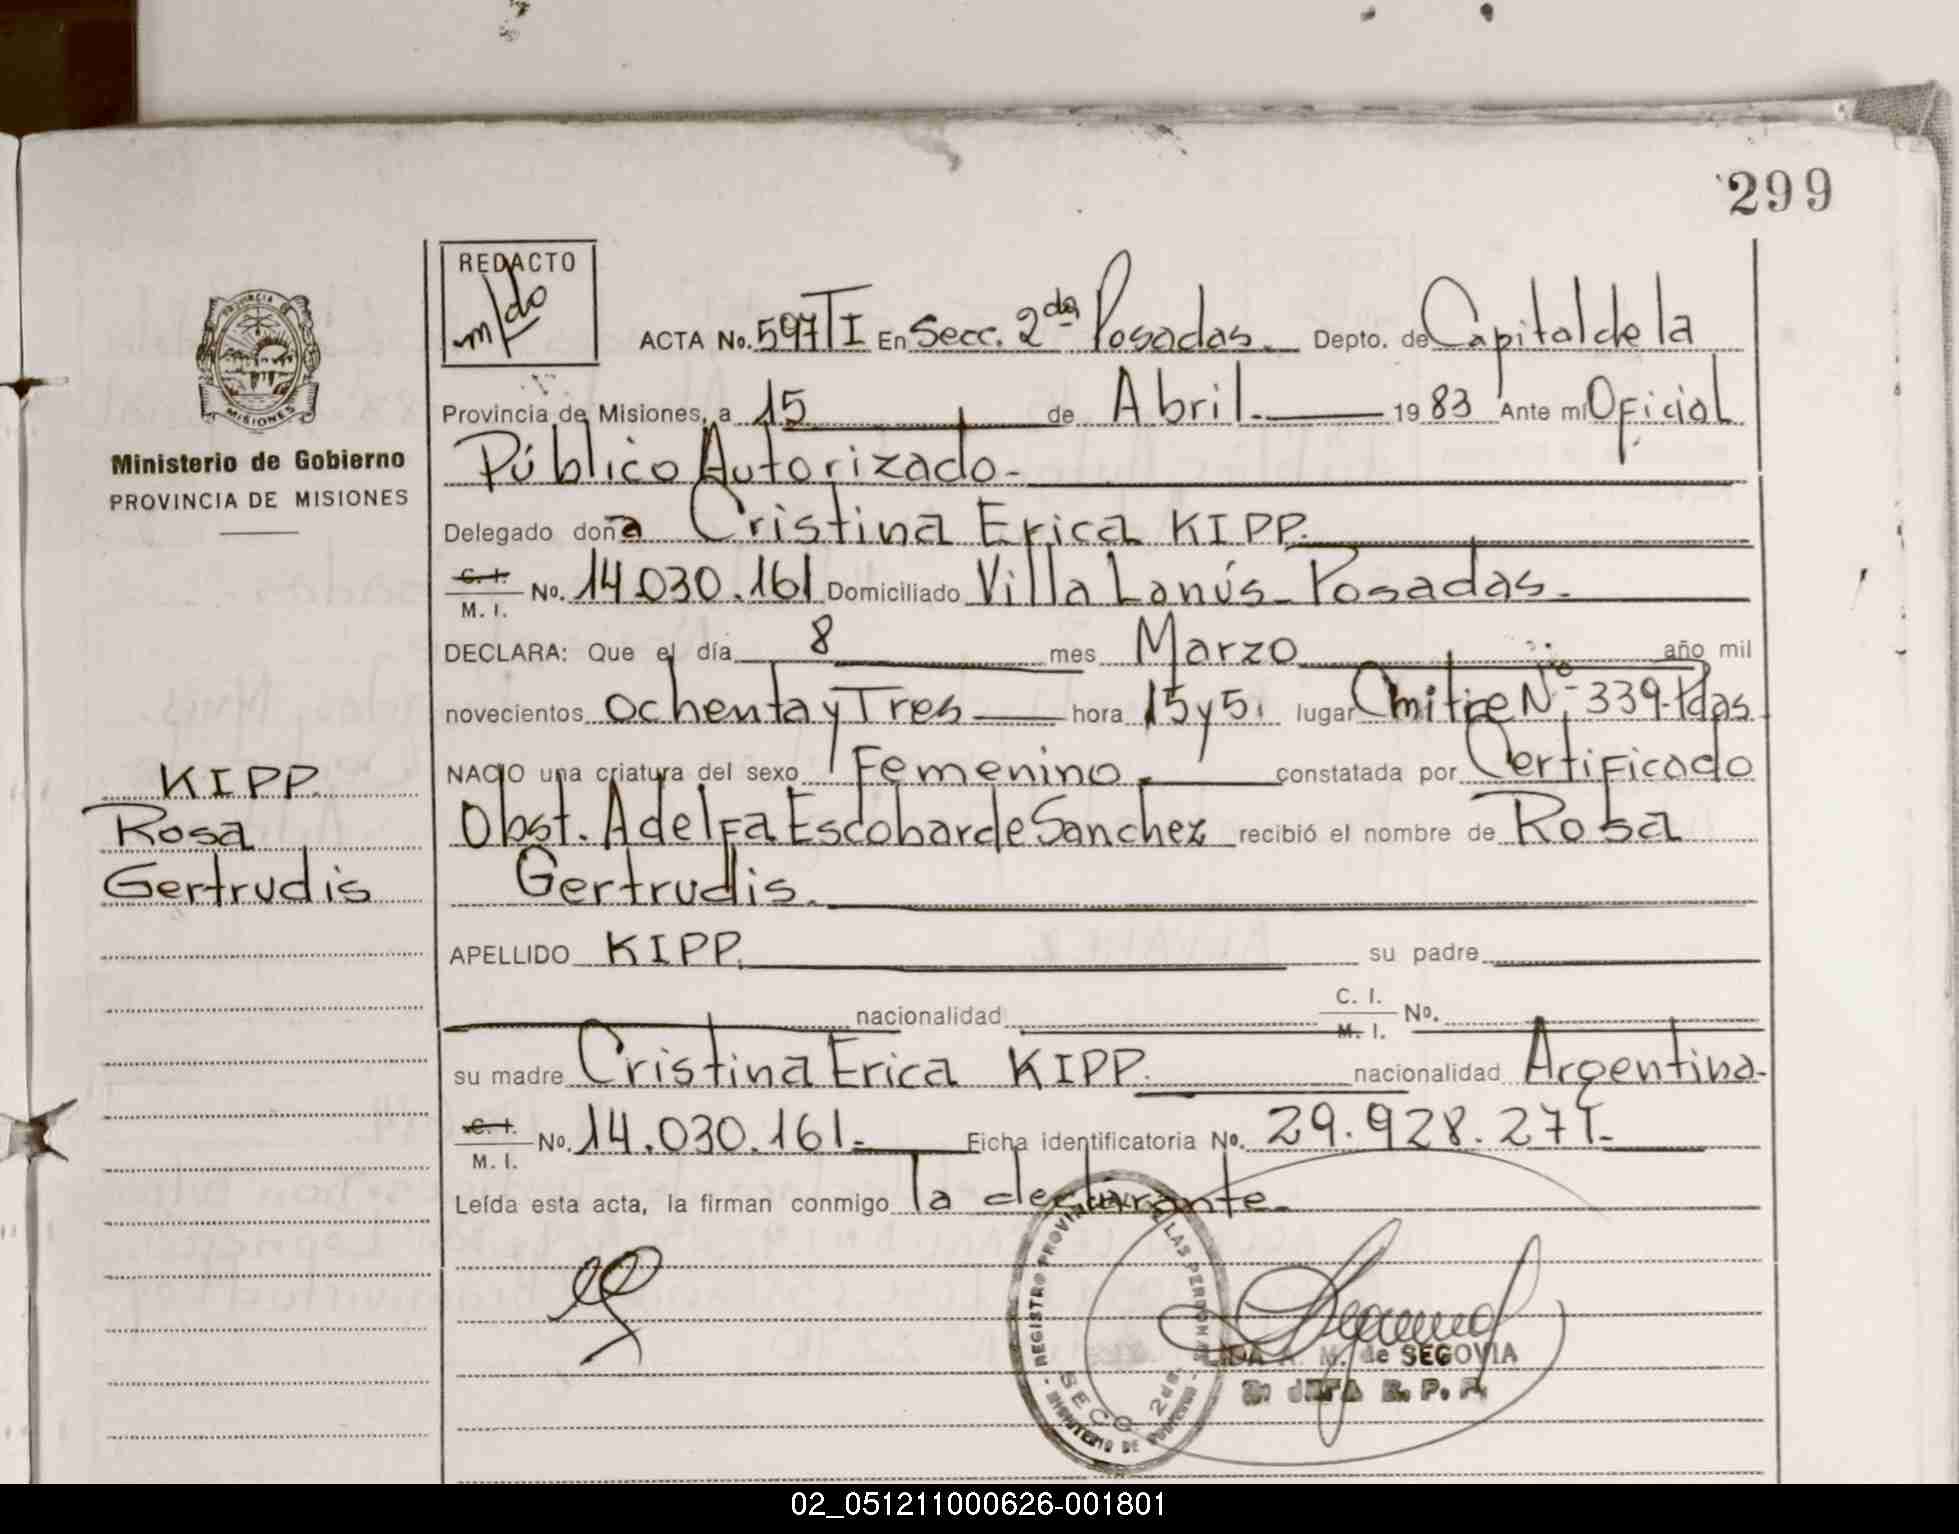 299
PROVINCIA DE
MISIONES
Ministerio de Gobierno
PROVINCIA DE MISIONES
KIPP.
Rosa
Gertrudis
REDACTO
ACTA No. 597 T I En Secc. 2da Posadas. Depto. de Capital de la
Provincia de Misiones, a 15 de Abril. 1983 Ante mí Oficial
Público Autorizado-
Delegado doña Cristina Erica KIPP.
C. I.
M. I. No. 14.030.161 Domiciliado Villa Lanús - Posadas.
DECLARA: Que el día 8 mes Marzo año mil
novecientos ochenta y Tres hora 15 y 5. lugar Cmitre Nº 339-Pdas
NACIO una criatura del sexo Femenino. constatada por Certificado
Obst. Adelfa Escobar de Sanchez recibió el nombre de Rosa
Gertrudis.
APELLIDO KIPP. su padre
nacionalidad C. I. M. I. No.
su madre Cristina Erica KIPP. nacionalidad Argentina.
C. I.
M. I. No. 14.030.161.- Ficha identificatoria No. 29.928.271.-
Leída esta acta, la firman conmigo la declarante.
REGISTRO PROVINCIAL DE LAS PERSONAS
SECC. 2da.
MINISTERIO DE GOBIERNO
A. M. de SEGOVIA
JEFA R. P. P.
02_051211000626-001801